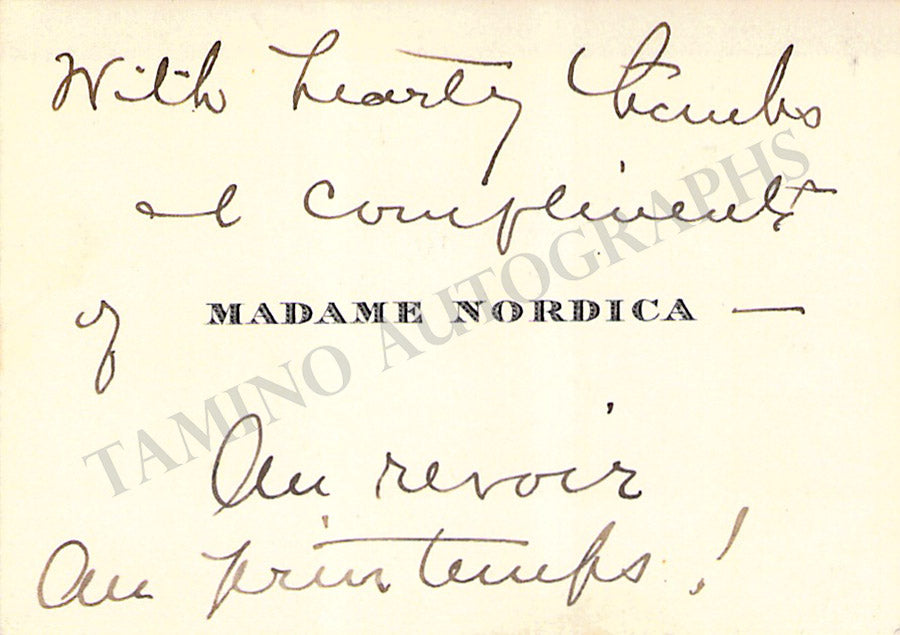 With hearty thanks
& compliments
of MADAME NORDICA —
Au revoir
Au printemps !
TAMINO AUTOGRAPHS